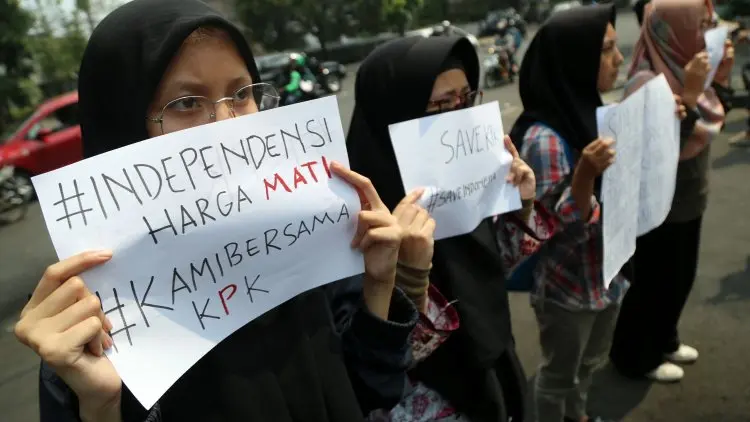 #INDEPENDENSI
HARGA MATI
#KAMIBERSAMA
KPK
SAVE
#SAVEINDONESIA